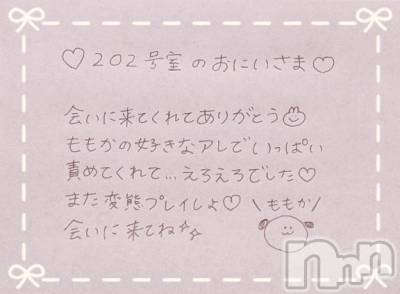 ♡202号室のおにいさま♡
会いに来てくれてありがとう
ももかの好きなアレでいっぱい
責めてくれて...えろえろでした♡
また変態プレイしよ♡ \ももか/
会いに来てね☆☆
nmn